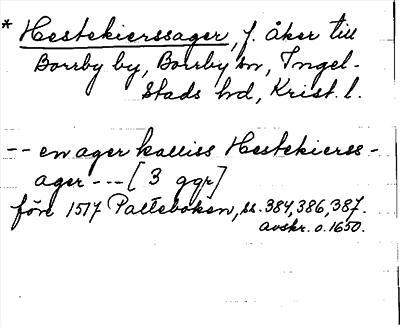 * Hestekierssager, f. åker till
Borrby by, Borrby sn, Ingel-
stads hd, Krist. l.
-- en ager kalliss Hestekierss-
ager --- [3 ggr]
före 1517 Palteboken, ss. 384, 386, 387.
avskr. o. 1650.